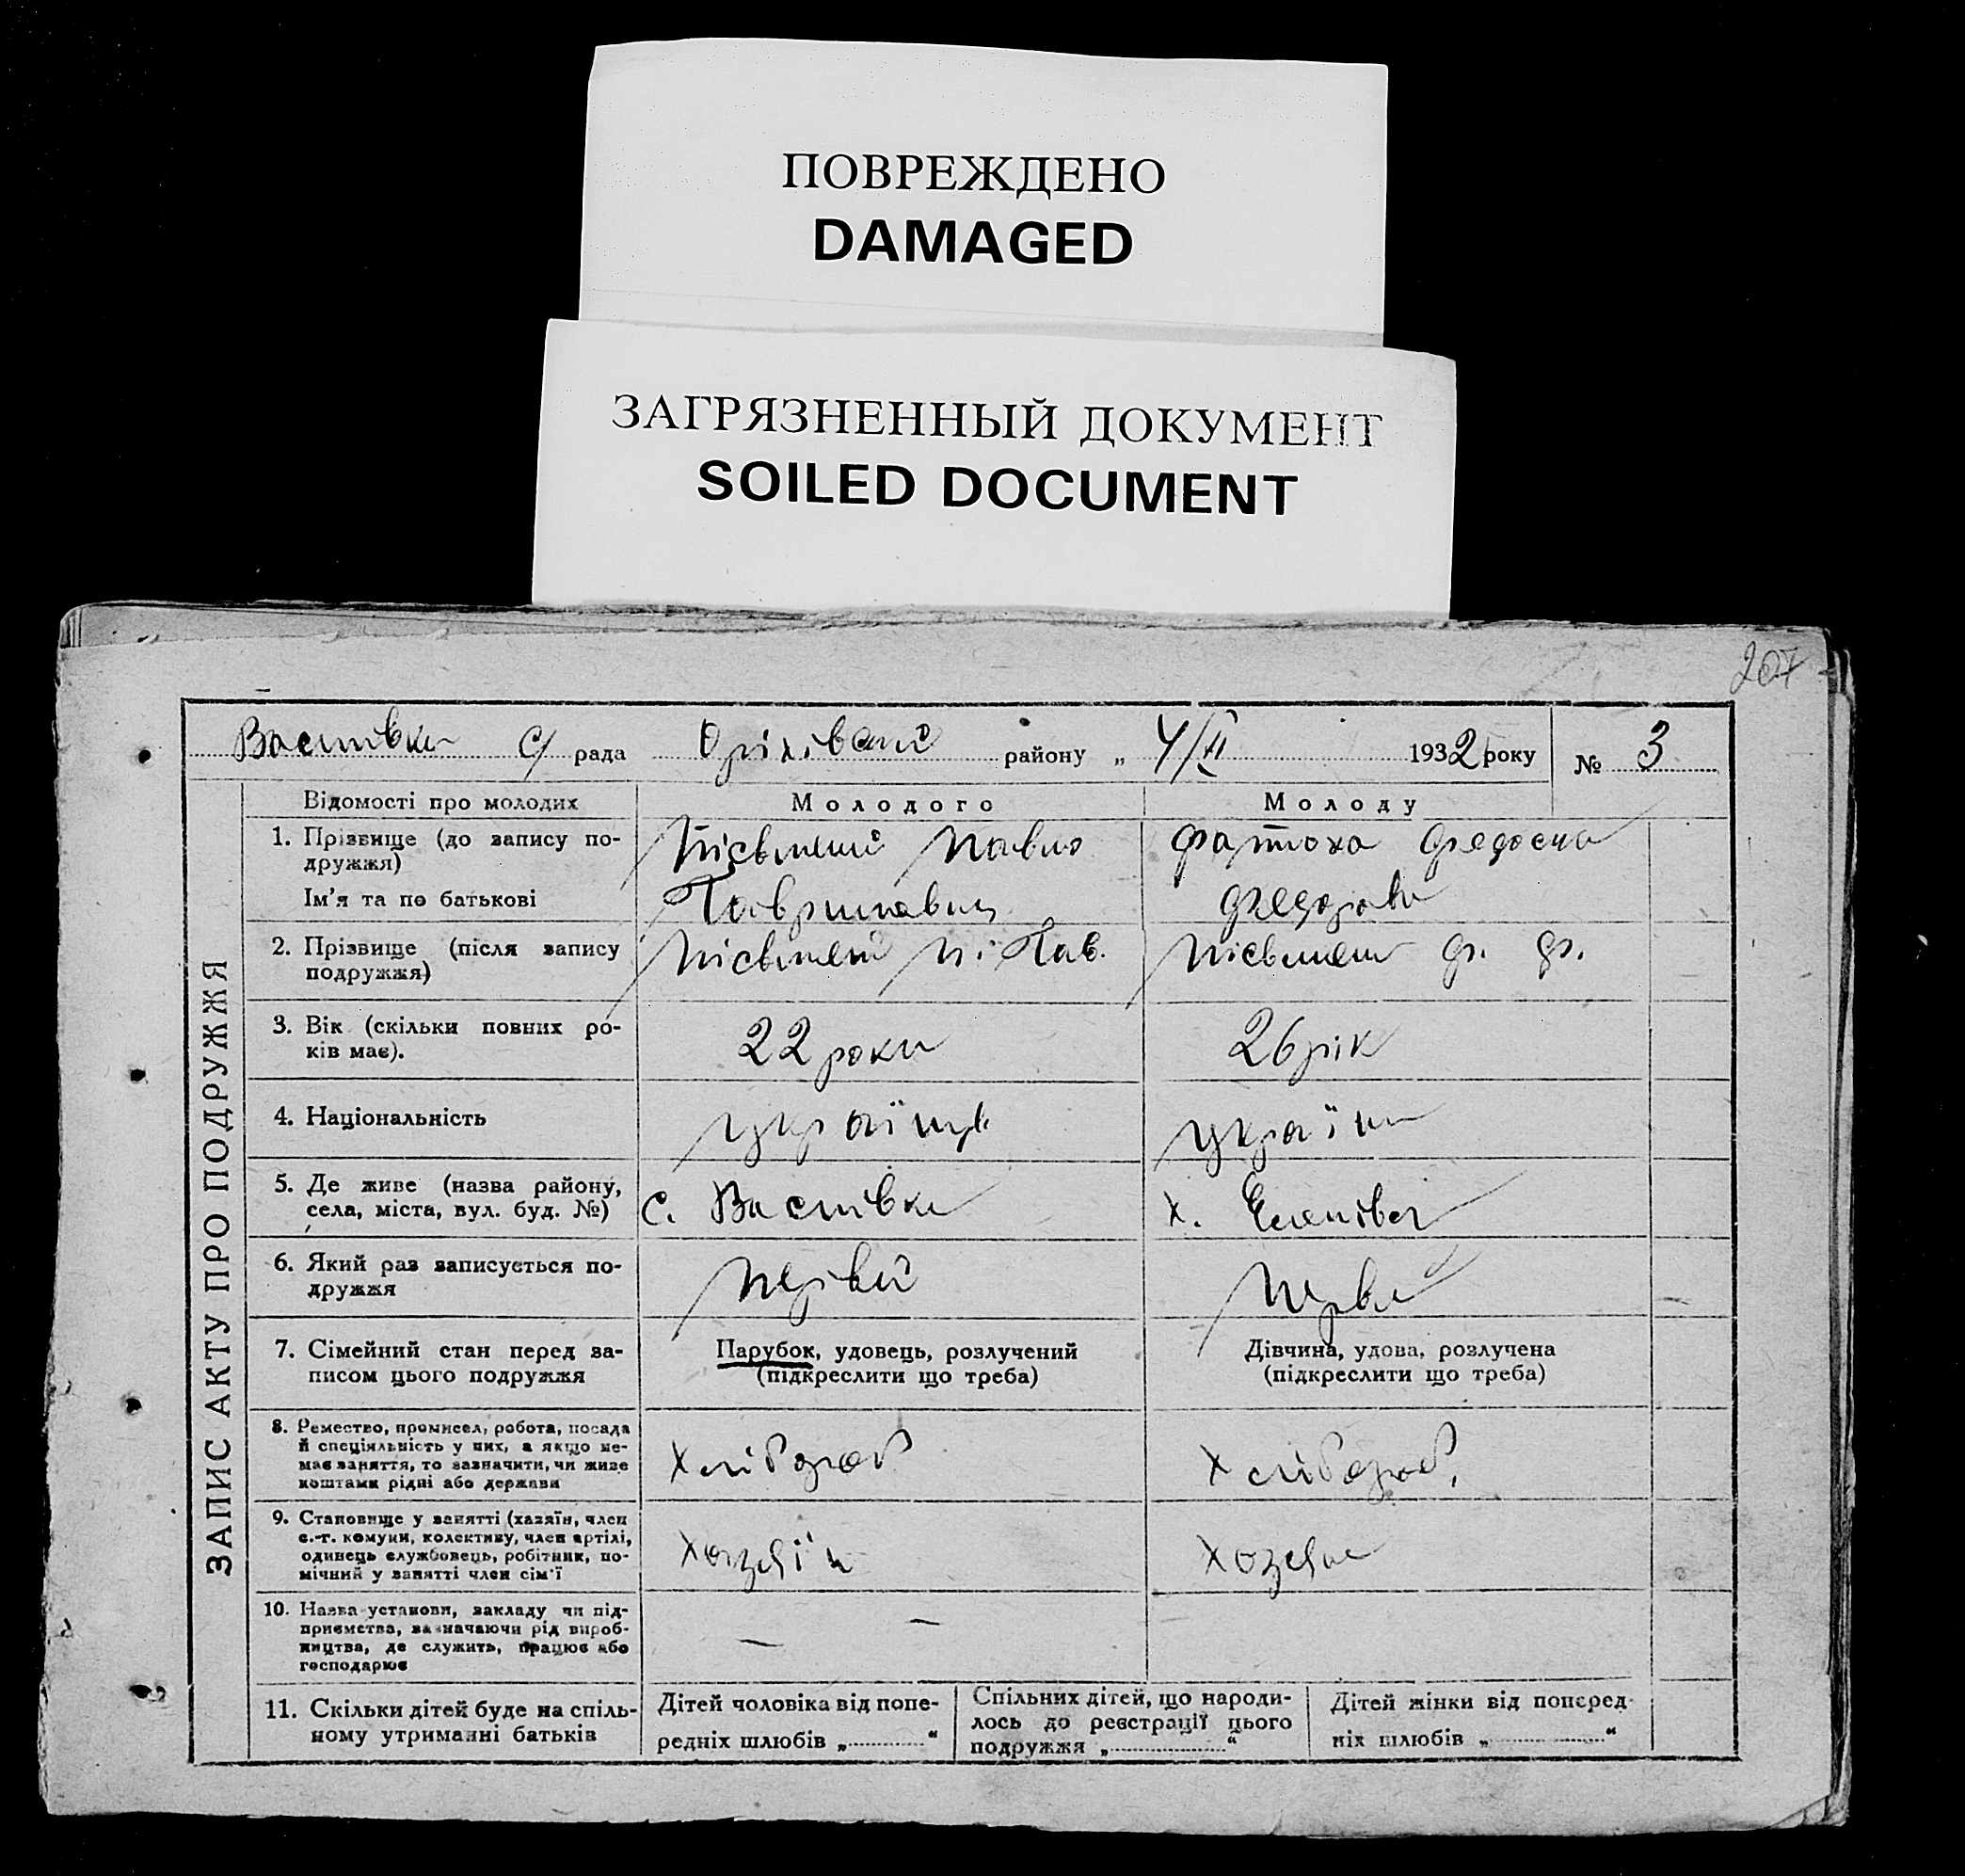 ПОВРЕЖДЕНО
DAMAGED
ЗАГРЯЗНЕННЫЙ ДОКУМЕНТ
SOILED DOCUMENT
207
Васинівки С/ рада Оріхівській району „ 4/II 1932 року № 3
ЗАПИС АКТУ ПРО ПОДРУЖЖЯ
Відомості про молодих Молодого Молоду
1. Прізвище (до запису по- Письмений Павло Федосия
дружжя)
Ім'я та по батькові Гаврилович Федорівн
2. Прізвище (після запису
подружжя)
3. Вік (скільки повних ро- 22 роки 26 рік
ків має).
4. Національність українц україн
5. Де живе (назва району,
села, міста, вул. буд. №) с. Х.
6. Який раз записується по- первий
дружжя
7. Сімейний стан перед за- Парубок, удовець, розлучений Дівчина, удова, розлучена
писом цього подружжя (підкреслити що треба) (підкреслити що треба)
8. Ремество, промисел, робота, посада
й спеціяльність у них, а якщо не-
має заняття, то зазначити, чи живе
коштами рідні або держави
Хлібороб Хлібороб,
9. Становище у занятті (хазяїн, член
с.-г. комуни, колективу, член артілі,
одинець службовець, робітник, по-
мічний у занятті член сім'ї
Хазяїн
10. Назва установи, закладу чи під-
приємства, зазначаючи рід вироб-
ництва, де служить, працює або
господарює
— —
11. Скільки дітей буде на спіль-
ному утриманні батьків
Дітей чоловіка від попе-
редніх шлюбів „ “
Спільних дітей, що народи-
лось до реєстрації цього
подружжя „ “
Дітей жінки від поперед-
ніх шлюбів „ “